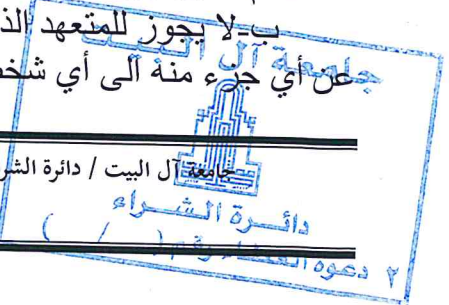 ب-لا يجوز للمتعهد الذ
عن أي جزء منه الى أي شخص
جامعة آل البيت
جامعة آل البيت / دائرة الشر
دائرة الشراء
٢ دعوة العطاء رقم ( / )